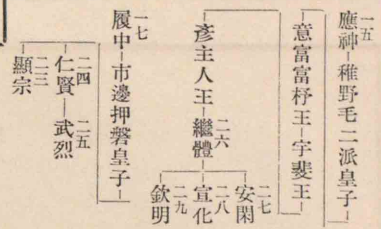 一五
應神―稚野毛二派皇子―
―意富富杼王―宇斐王―
―彥主人王―繼體
二六
安閑
二七
宣化
二八
欽明
二九
一七
履中―市邊押磐皇子―
仁賢―武烈
二四 二五
顯宗
二三